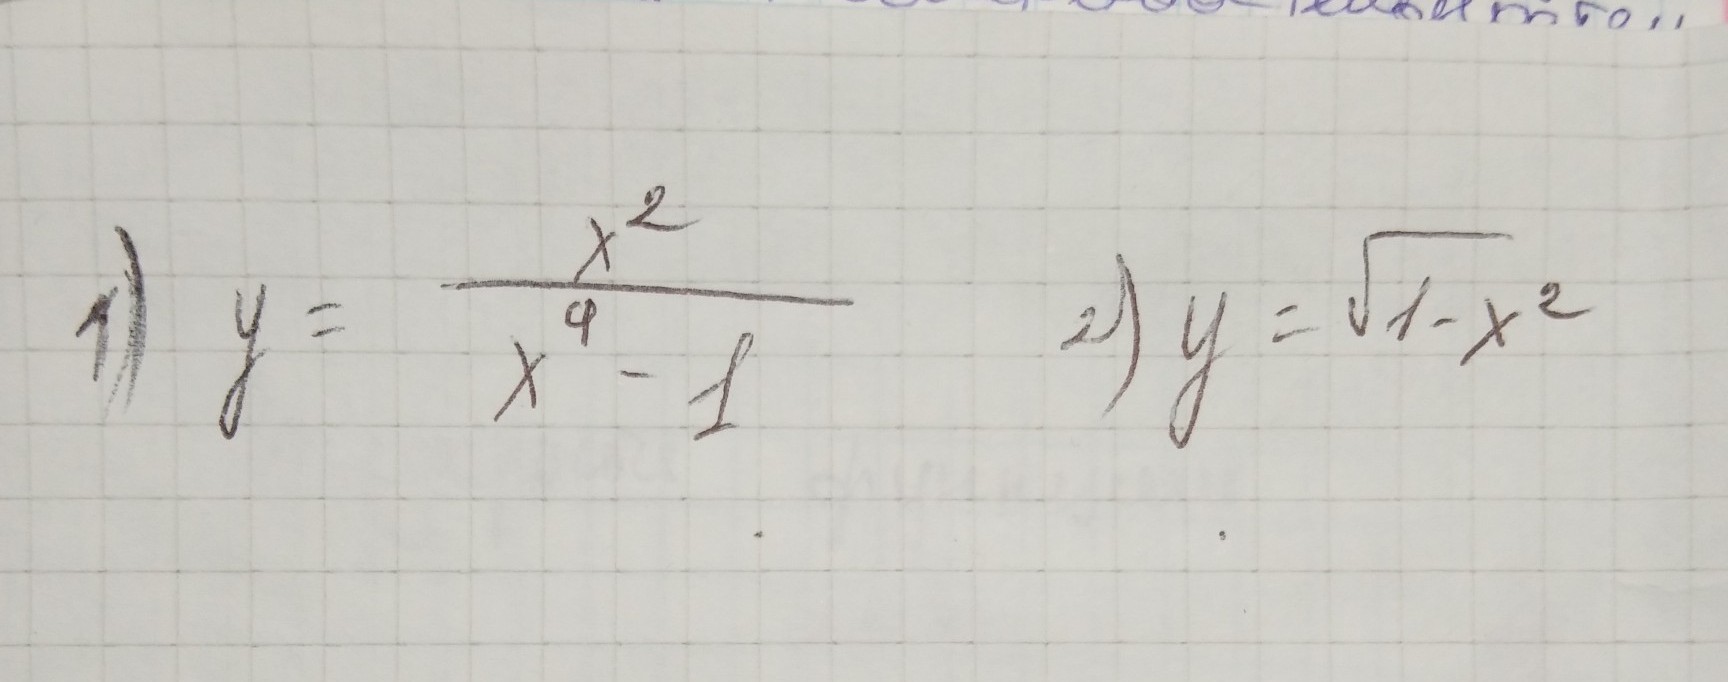 1) y = x² / (x⁴ - 1)    2) y = √1-x²